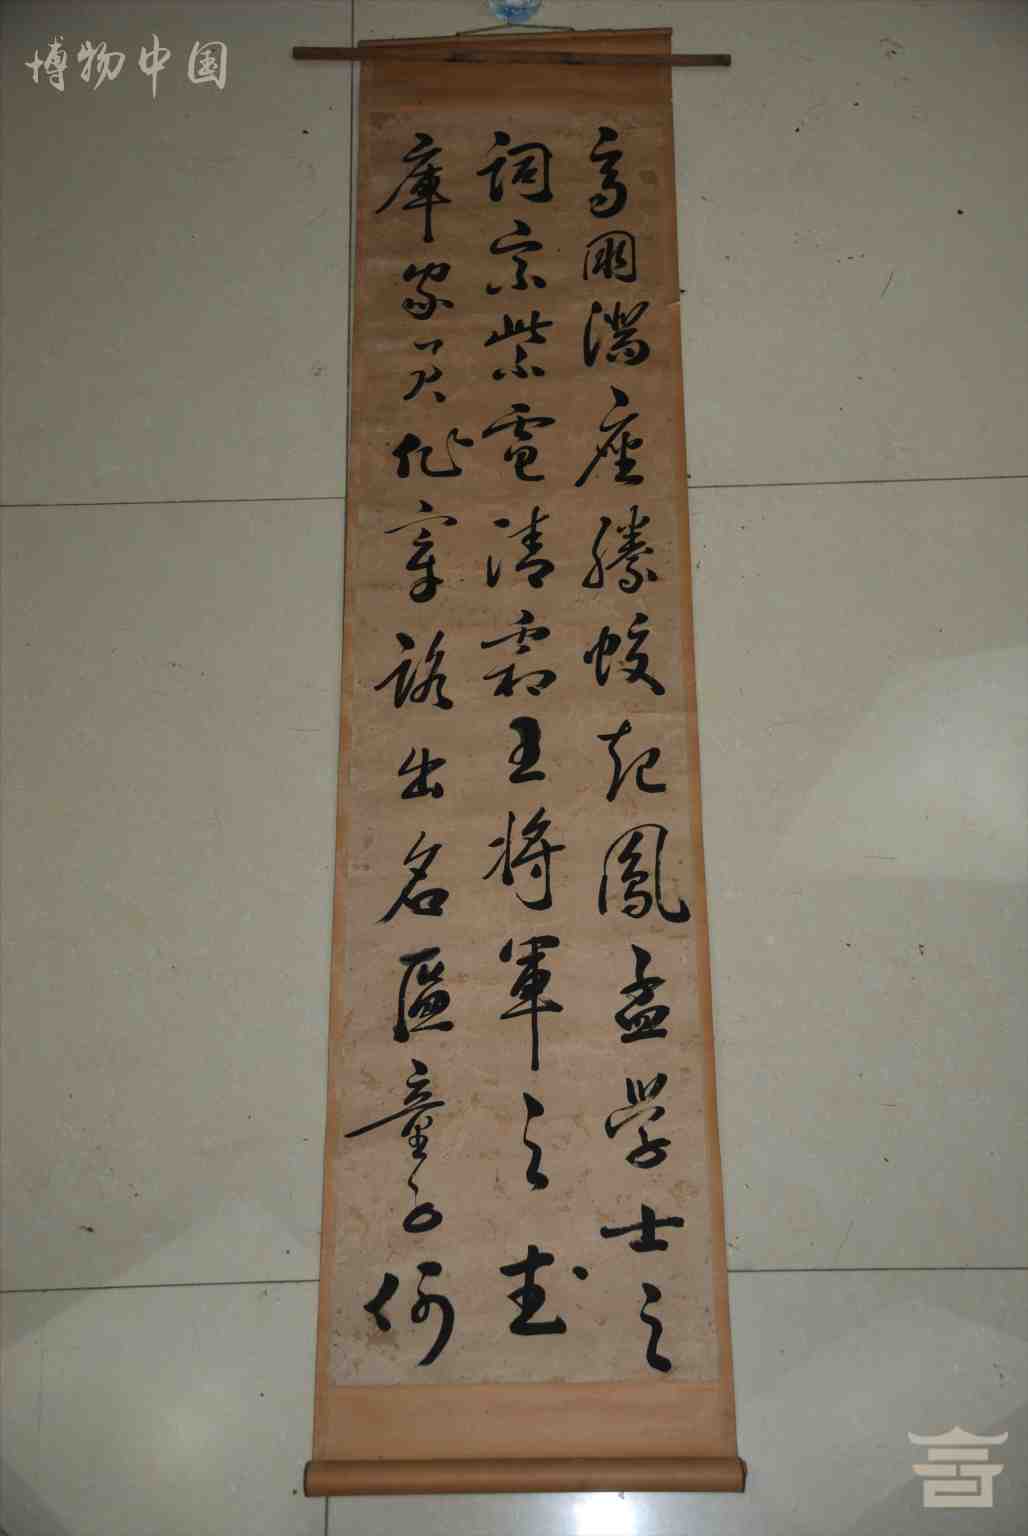 高朋满座腾蛟起鳳孟学士之
詞宗紫電清霜王將軍之武
庫家君作宰路出名區童子何
博物中国